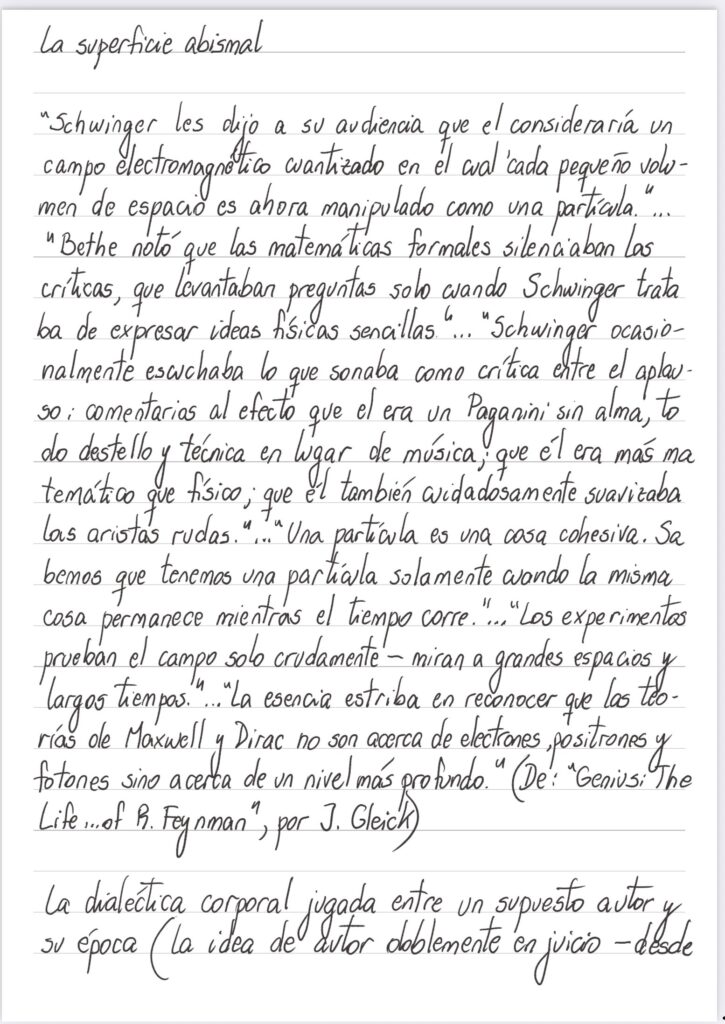 La superficie abismal
"Schwinger les dijo a su audiencia que el consideraría un
campo electromagnético cuantizado en el cual 'cada pequeño volu-
men de espacio es ahora manipulado como una partícula."...
"Bethe notó que las matemáticas formales silenciaban las
críticas, que levantaban preguntas solo cuando Schwinger trata
ba de expresar ideas físicas sencillas."..."Schwinger ocasio-
nalmente escuchaba lo que sonaba como crítica entre el aplau-
so: comentarios al efecto que el era un Paganini sin alma, to
do destello y técnica en lugar de música; que él era más ma
temático que físico; que él también cuidadosamente suavizaba
las aristas rudas."..."Una partícula es una cosa cohesiva. Sa
bemos que tenemos una partícula solamente cuando la misma
cosa permanece mientras el tiempo corre."..."Los experimentos
prueban el campo solo crudamente – miran a grandes espacios y
largos tiempos."..."La esencia estriba en reconocer que las teo-
rías de Maxwell y Dirac no son acerca de electrones, positrones y
fotones sino acerca de un nivel más profundo." (De: "Genius: The
Life...of R. Feynman", por J. Gleick)
La dialéctica corporal jugada entre un supuesto autor y
su época (la idea de autor doblemente en juicio – desde